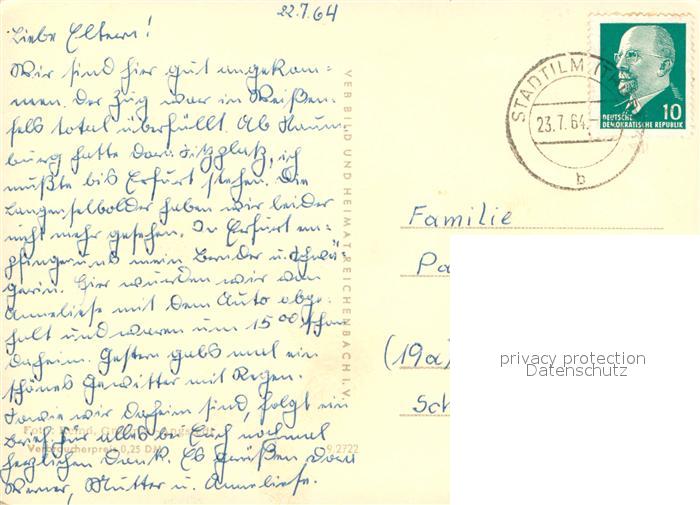 22.7.64
Liebe Eltern!
Wir sind hier gut angekom=
men. Der Zug war in Weißen=
fels total überfüllt. Ab Naum
burg hatte Doris Sitzplatz, ich
mußte bis Erfurt stehen. Die
Langenselbolder haben wir leider
nicht mehr gesehen. In Erfurt em=
pfing uns mein Bruder u. Schwä=
gerin. Hier wurden wir von
Anneliese mit dem Auto abge=
holt und waren um 15⁰⁰ schon
daheim. Gestern gabs mal ein
schönes Gewitter mit Regen.
Sowie wir daheim sind, folgt ein
Brief. Für alles bei Euch nochmal
herzlichen Dank. Es grüßen
Werner, Mutter u. Anneliese.
VEB BILD UND HEIMAT REICHENBACH I. V.
Foto:
Verbraucherpreis 0,25 DM
9.2722
STADTILM
23.7.64.
b
10
DEUTSCHE
DEMOKRATISCHE REPUBLIK
Familie
Pa
(19a)
Sch
privacy protection
Datenschutz